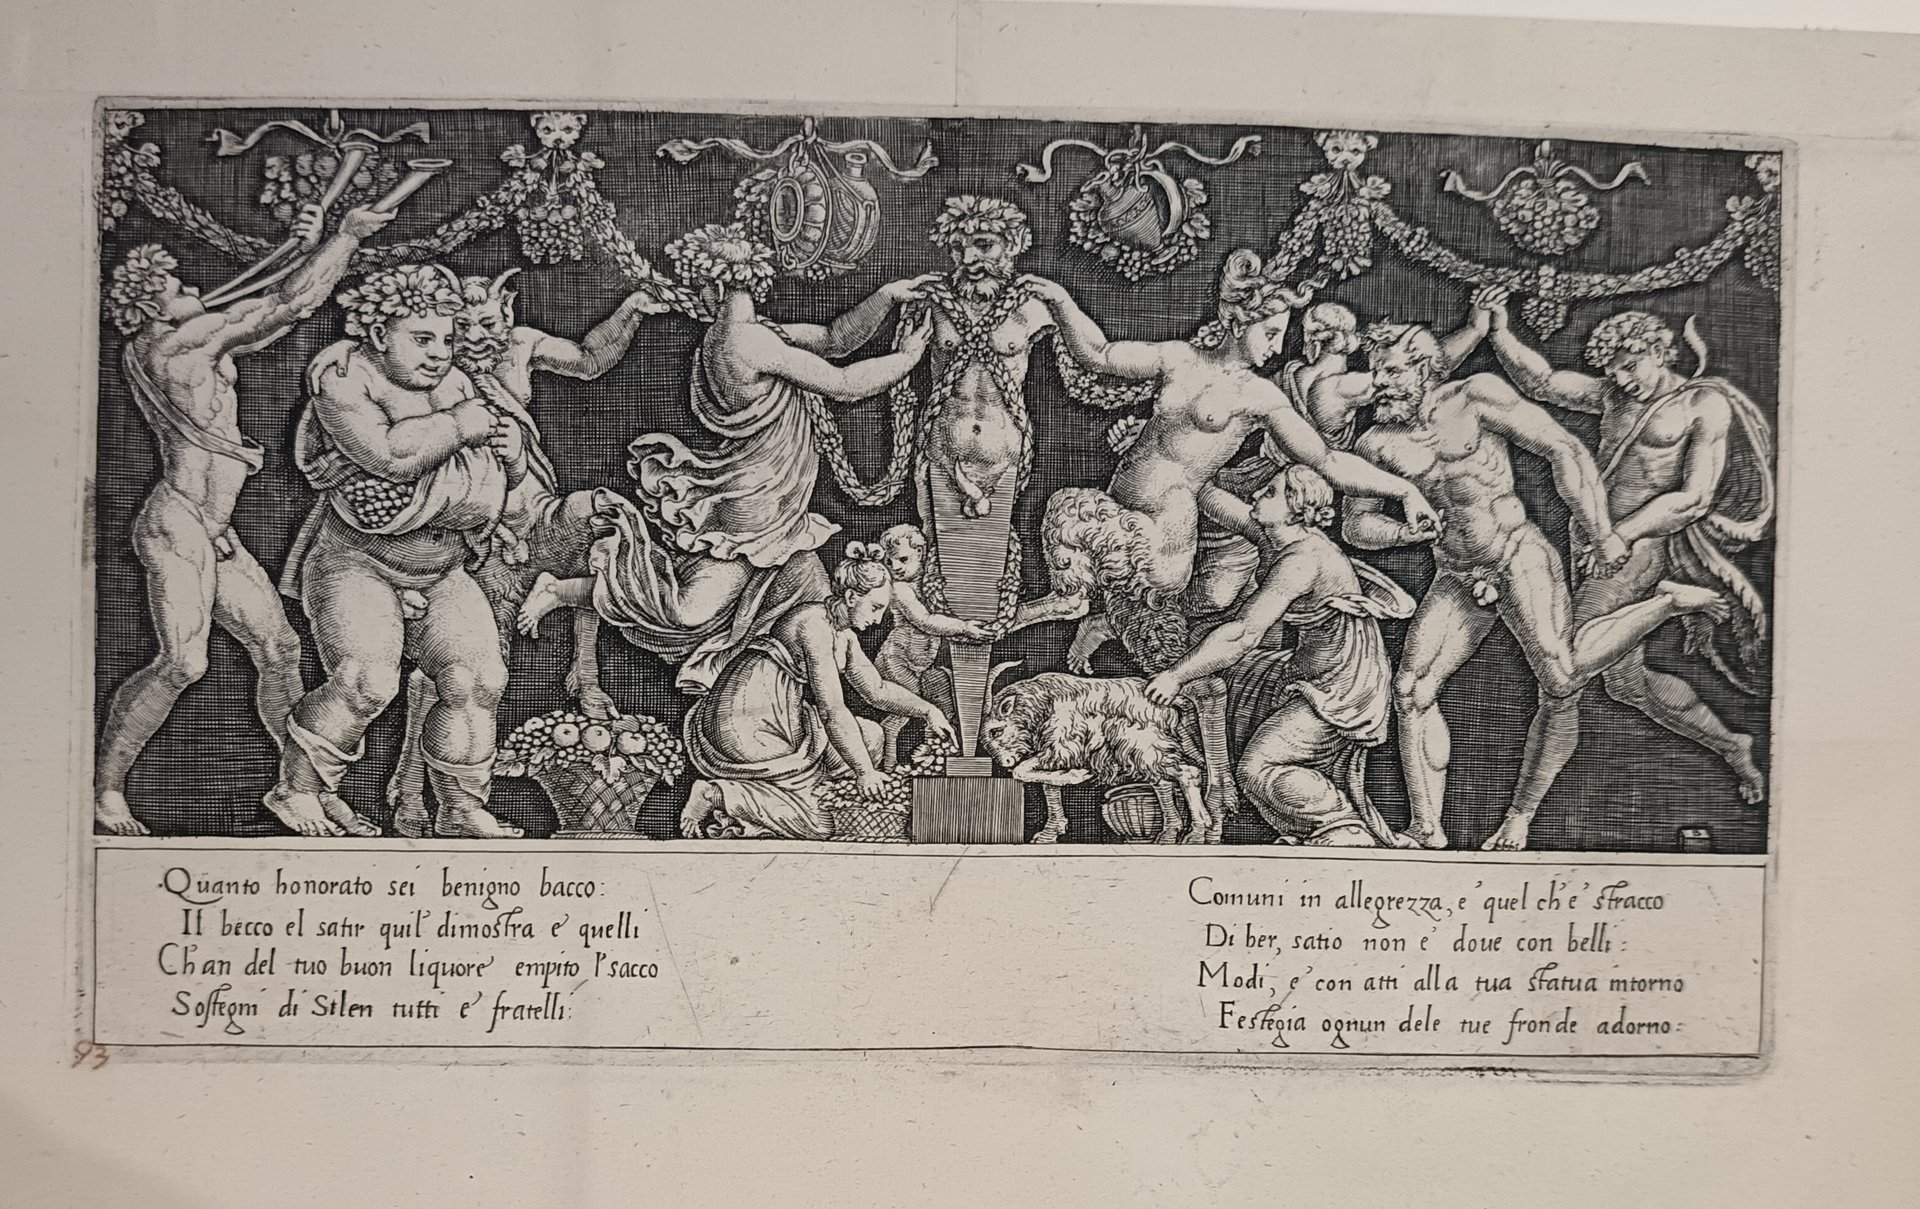 Quanto honorato sei benigno bacco:
Il becco el satir quil' dimostra e' quelli
Ch'an del tuo buon liquore' empito l'sacco
Sostegni di Silen tutti e' fratelli:
Comuni in allegrezza, e' quel ch'e' stracco
Di ber, satio non e' doue con belli:
Modi, e' con atti alla tua statua intorno
Festegia ognun dele tue fronde adorno:
93
B